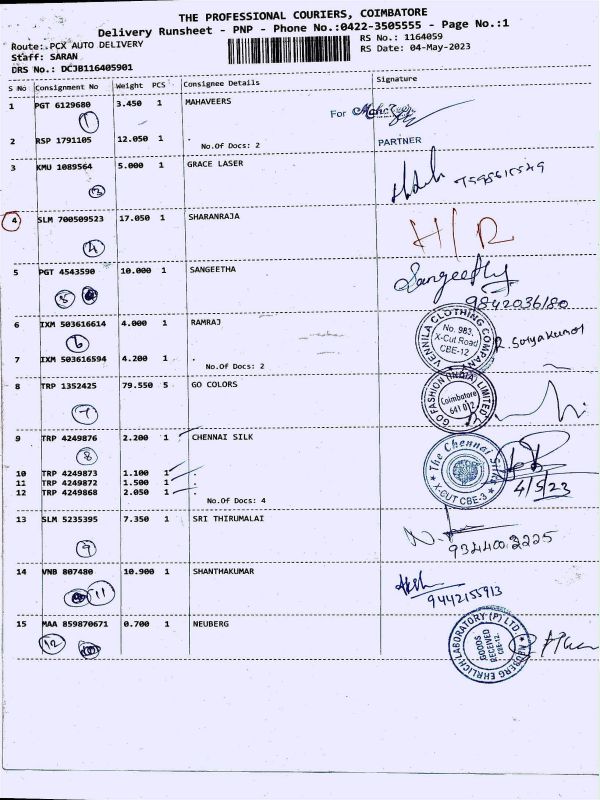 THE PROFESSIONAL COURIERS, COIMBATORE
Delivery Runsheet - PNP - Phone No.:0422-3505555 - Page No.:1
Route: PCX AUTO DELIVERY
RS No.: 1164059
Staff: SARAN
RS Date: 04-May-2023
DRS No.: DCJB116405901
S No Consignment No Weight PCS Consignee Details Signature
1 PGT 6129680 3.450 1 MAHAVEERS
1
For
2 RSP 1791105 12.050 1 .
No.Of Docs: 2
PARTNER
3 KMU 1089564 5.000 1 GRACE LASER
3
4 SLM 700509523 17.050 1 SHARANRAJA
H/R
4
5 PGT 4543590 10.000 1 SANGEETHA
Sangeetha
5
9842036180
6 IXM 503616614 4.000 1 RAMRAJ
6
VENNILA CLOTHING COMPANY
No. 983,
X-Cut Road
CBE-12
R. Suryakumar
7 IXM 503616594 4.200 1 .
No.Of Docs: 2
8 TRP 1352425 79.550 5 GO COLORS
7
GO FASHION (INDIA) LIMITED
Coimbatore
641 012
9 TRP 4249876 2.200 1 CHENNAI SILK
8
The Chennai Silks
X-CUT CBE-3
10 TRP 4249873 1.100 1
11 TRP 4249872 1.500 1
12 TRP 4249868 2.050 1 .
No.Of Docs: 4
4/5/23
13 SLM 5235395 7.350 1 SRI THIRUMALAI
9
934400 2225
14 VNB 807480 10.900 1 SHANTHAKUMAR
11
9442155913
15 MAA 859870671 0.700 1 NEUBERG
12
NEUBERG EHRLICH LABORATORY (P) LTD.
GOODS
RECEIVED
CBE-12.